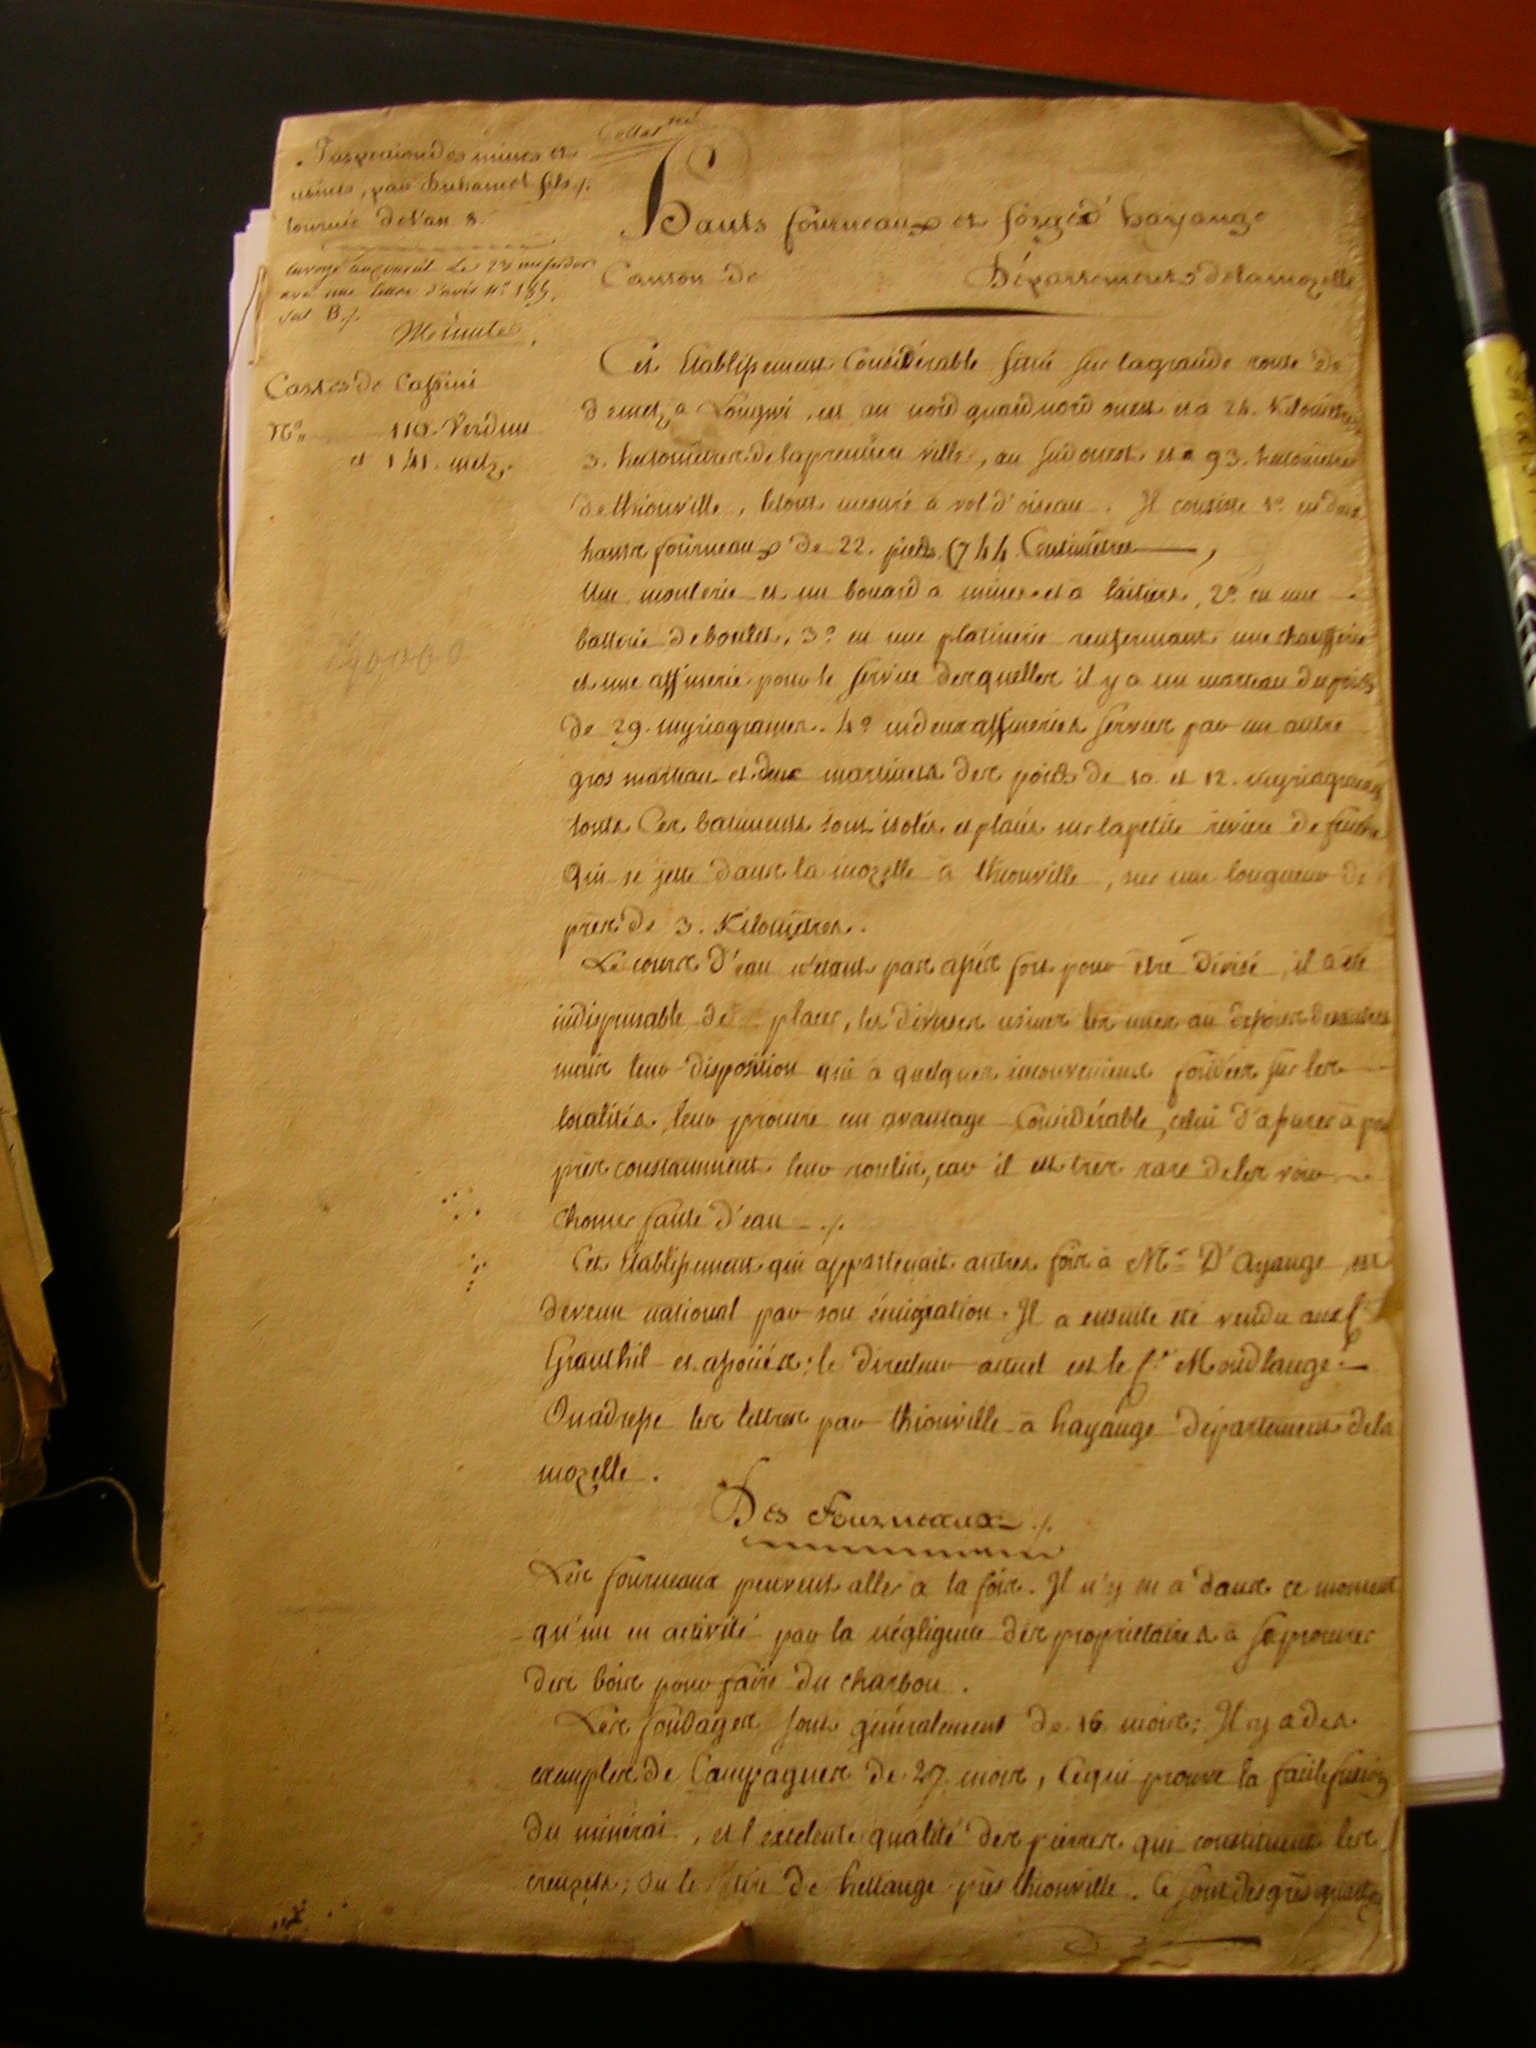 Inspection des mines et
usines, par duhamel fils ./.
tournée de l'an 8.
envoyé au conseil le 23 messidor
avec une lettre d'avis N.° 185.
Minute
Cartes de Cassini
N.os 110. Verdun
et 141. metz.
Collat née
Hauts fourneaux et forges d'hayange
Canton de Département de la mozelle
Cet Etablissement Considérable situé sur la grande route de
de metz a Longwi, est au nord quard nord ouest et a 24. Kilomètres
3. hectomètres de la premiere ville, au sud ouest et a 93. hectomètres
de thionville, letout mesuré a vol d'oiseau. Il consiste 1.° en deux
hauts fourneaux de 22. pieds (744 Centimètres ,
une moulerie et un bocard a mines et a laitiers, 2.° en une
batterie de boulets, 3.° en une platinerie renfermant une chaufferie
et une affinerie pour le service desquelles il y a un marteau du poids
de 29. myriagrames. 4.° en deux affineries servies par un autre
gros marteau et deux martinets des poids de 10. et 12. myriagrames
touts Ces batiments sont isolés et placés sur la petite riviere de fentsch
qui se jette dans la mozelle a thionville, sur une longueur de
près de 3. Kilomètres.
Le cours d'eau n'étant pas assés fort pour être divisé, il a été
indispensable de placer, les diverses usines les unes au dessous des autres
mais leur disposition qui a quelques inconvenients fondées sur les
localités, leur procure un avantage Considérable, celui d'assurer a peu
près constamment leur roulis, car il est très rare de les voir
chomer faute d'eau ./.
Cet Etablissement qui appartenait autres fois à M.r D'Ayange, est
devenu national par son émigration. Il a ensuite été vendu aux S.rs
Granthil et associés; le directeur actuel est le S.r Mondlange.
On adresse les lettres par thionville à hayange département de la
mozelle.
Des Fourneaux ./.
Les fourneaux peuvent aller a la fois. Il n'y en a dans ce moment
qu'un en activité par la négligence des propriétaires a se procurer
des bois pour faire du charbon.
Les fondages sont généralement de 16 mois; Il y a des
exemples de Campagnes de 27 mois, Ce qui prouve la facile fusion
du minérai, et l'excelente qualité des pierres qui constituent les
creuzets; on le tire de hettange près thionville. Ce sont des grès quartz